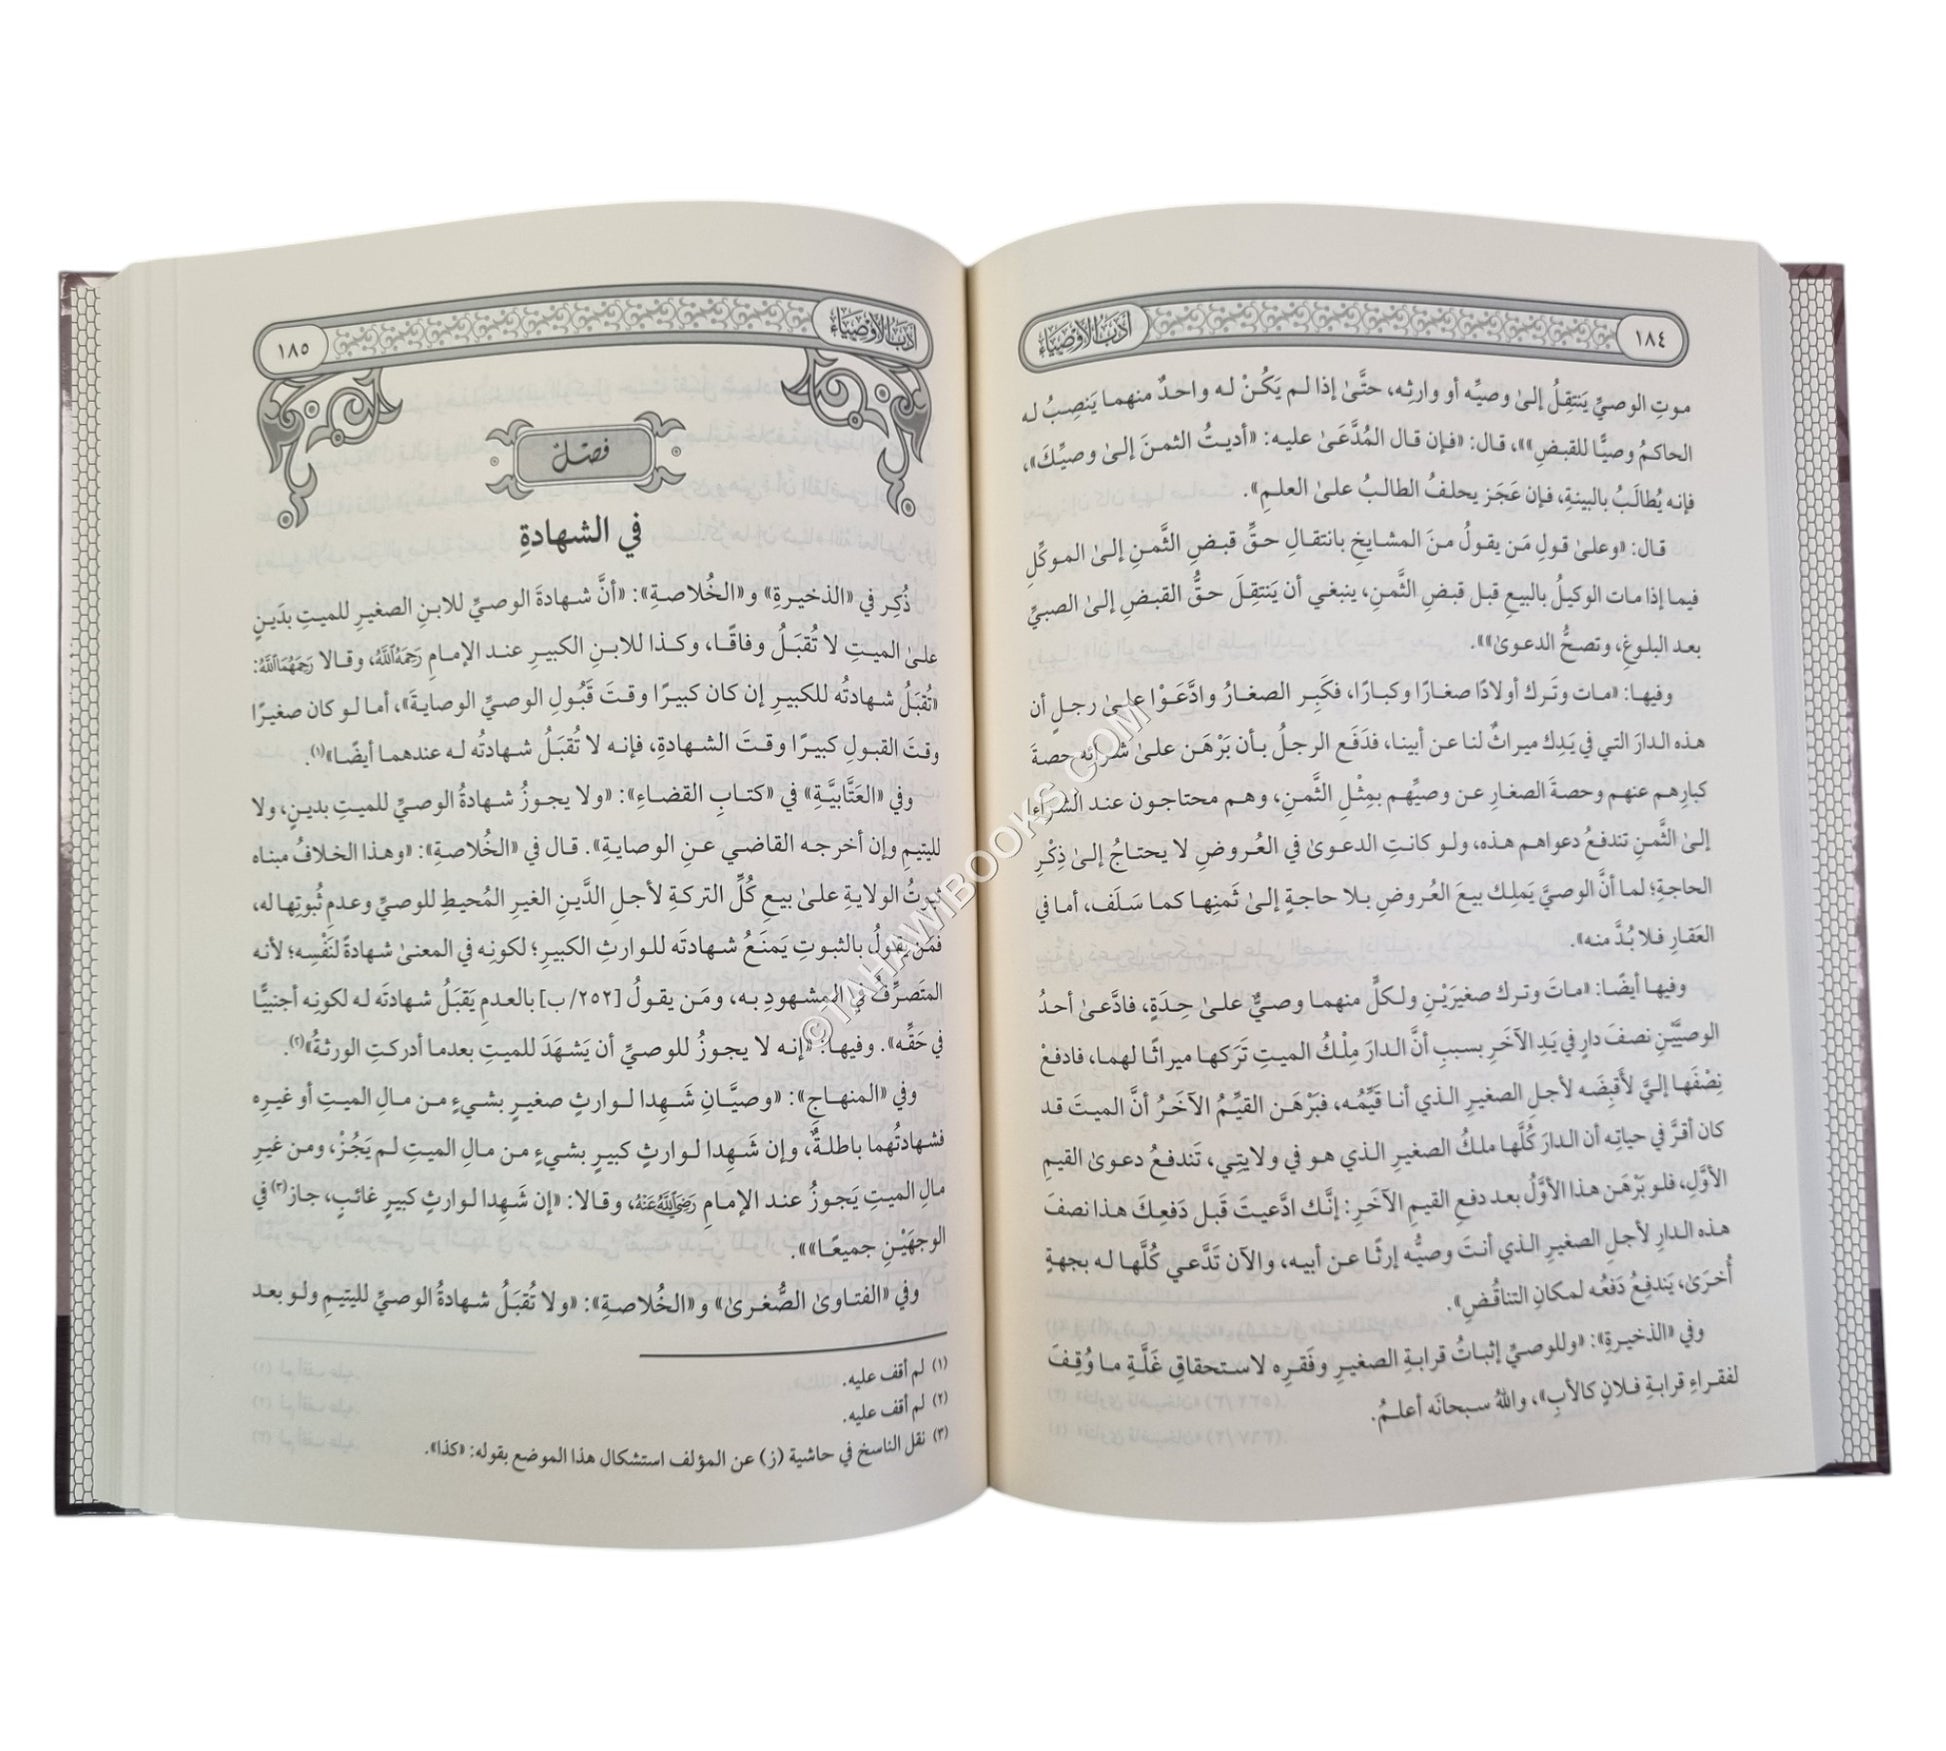 ١٨٤
أدب الأوصياء
موتِ الوصيِّ يَنتقِلُ إلىٰ وصيِّه أو وارثِه، حتَّىٰ إذا لم يَكُنْ له واحدٌ منهما يَنصِبُ له
الحاكمُ وصيًّا للقبضِ»»، قال: «فإن قال المُدَّعَىٰ عليه: «أديتُ الثمنَ إلىٰ وصيِّكَ»،
فإنه يُطالَبُ بالبينةِ، فإن عَجَز يحلفُ الطالبُ علىٰ العلمِ».
قال: «وعلىٰ قولِ مَن يقولُ منَ المشايخِ بانتقالِ حقِّ قبضِ الثَّمنِ إلىٰ الموكِّلِ
فيما إذا مات الوكيلُ بالبيعِ قبل قبضِ الثَّمنِ، ينبغي أن يَنتقِلَ حقُّ القبضِ إلىٰ الصبيِّ
بعد البلوغِ، وتصحُّ الدعوىٰ»».
وفيها: «مات وتَرك أولادًا صغارًا وكبارًا، فكَبِر الصغارُ وادَّعَوْا علىٰ رجلٍ أن
هذه الدارَ التي في يَدِك ميراثٌ لنا عن أبينا، فدَفَع الرجلُ بأن بَرْهَن علىٰ شرائه حصةَ
كبارِهم عنهم وحصةَ الصغارِ عن وصيِّهم بمِثْلِ الثَّمنِ، وهم محتاجون عند الشراء
إلىٰ الثَّمنِ تندفعُ دعواهم هذه، ولو كانتِ الدعوىٰ في العُروضِ لا يحتاجُ إلىٰ ذِكْرِ
الحاجةِ؛ لما أنَّ الوصيَّ يَملِك بيعَ العُروضِ بلا حاجةٍ إلىٰ ثَمنِها كما سَلَف، أما في
العَقارِ فلا بُدَّ منه».
وفيها أيضًا: «ماتَ وترك صغيرَيْنِ ولكلٍّ منهما وصيٌّ علىٰ حِدَةٍ، فادَّعىٰ أحدُ
الوصيَّيْنِ نصفَ دارٍ في يَدِ الآخَرِ بسببِ أنَّ الدارَ مِلْكُ الميتِ تَرَكها ميراثًا لهما، فادفعْ
نِصْفَها إليَّ لأَقبِضَه لأجلِ الصغيرِ الذي أنا قَيِّمُه، فبَرْهَن القيِّمُ الآخَرُ أنَّ الميتَ قد
كان أقرَّ في حياتِه أن الدارَ كُلَّها ملكُ الصغيرِ الذي هو في ولايتِي، تَندفعُ دعوىٰ القيمِ
الأوَّلِ، فلو بَرْهَن هذا الأوَّلُ بعد دفعِ القيمِ الآخَرِ: إنَّك ادَّعيتَ قَبل دَفعِكَ هذا نصفَ
هذه الدارِ لأجلِ الصغيرِ الذي أنتَ وصيُّه إرثًا عن أبيه، والآن تَدَّعي كُلَّها له بجهةٍ
أُخرَىٰ، يَندفِعُ دَفعُه لمكانِ التناقُضِ».
وفي «الذخيرةِ»: «وللوصيِّ إثباتُ قرابةِ الصغيرِ وفَقرِه لاستحقاقِ غَلَّةِ ما وُقِفَ
لفقراءِ قرابةِ فلانٍ كالأبِ»، واللهُ سبحانَه أعلمُ.
أدب الأوصياء
١٨٥
فصل
في الشهادةِ
ذُكِر في «الذخيرةِ» و«الخُلاصةِ»: «أنَّ شهادةَ الوصيِّ للابنِ الصغيرِ للميتِ بدَينٍ
علىٰ الميتِ لا تُقبَلُ وفاقًا، وكذا للابنِ الكبيرِ عند الإمامِ رَحِمَهُ اللَّهُ، وقالا رَحِمَهُمَا اللَّهُ:
«تُقبَلُ شهادتُه للكبيرِ إن كان كبيرًا وقتَ قَبُولِ الوصيِّ الوصايةَ»، أما لو كان صغيرًا
وقتَ القبولِ كبيرًا وقتَ الشهادةِ، فإنه لا تُقبَلُ شهادتُه له عندهما أيضًا»(١).
وفي «العَتَّابيَّةِ» في «كتابِ القضاءِ»: «ولا يجوزُ شهادةُ الوصيِّ للميتِ بدينٍ، ولا
لليتيمِ وإن أخرجه القاضي عنِ الوصايةِ». قال في «الخُلاصةِ»: «وهذا الخلافُ مبناه
ثبوتُ الولايةِ علىٰ بيعِ كُلِّ التركةِ لأجلِ الدَّينِ الغيرِ المُحيطِ للوصيِّ وعدمِ ثُبوتِها له،
فمَن يقولُ بالثبوتِ يَمنَعُ شهادتَه للوارثِ الكبيرِ؛ لكونِه في المعنىٰ شهادةً لنَفْسِه؛ لأنه
المتَصرِّفُ في المشهودِ به، ومَن يقولُ [٢٥٢/ ب] بالعدمِ يَقبَلُ شهادتَه له لكونِه أجنبيًّا
في حَقِّه». وفيها: «إنه لا يجوزُ للوصيِّ أن يَشهَدَ للميتِ بعدما أدركتِ الورثةُ»(٢).
وفي «المنهاجِ»: «وصيَّانِ شَهِدا لوارثٍ صغيرٍ بشيءٍ من مالِ الميتِ أو غيرِه
فشهادتُهما باطلةٌ، وإن شَهِدا لوارثٍ كبيرٍ بشيءٍ من مالِ الميتِ لم يَجُزْ، ومن غيرِ
مالِ الميتِ يَجوزُ عند الإمامِ رَضِيَ اللَّهُ عَنْهُ، وقالا: «إن شَهِدا لوارثٍ كبيرٍ غائبٍ، جاز(٣) في
الوجهَيْنِ جميعًا»».
وفي «الفتاوىٰ الصُّغرىٰ» و«الخُلاصةِ»: «ولا تُقبَلُ شهادةُ الوصيِّ لليتيمِ ولو بعد
(١) لم أقف عليه.
(٢) لم أقف عليه.
(٣) نقل الناسخ في حاشية (ز) عن المؤلف استشكال هذا الموضع بقوله: «كذا».
©TAHAWIBOOKS.COM